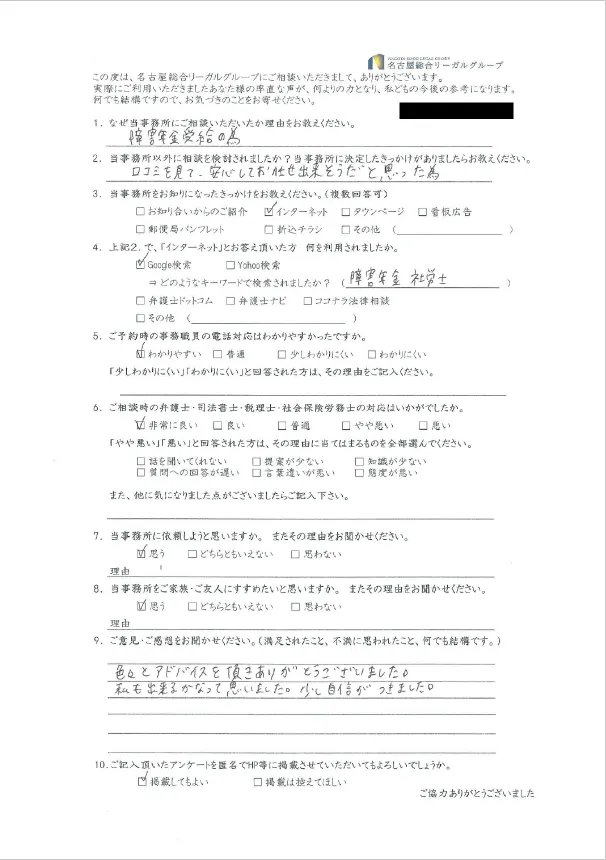 NAGOYA SOGO LEGAL GROUP
名古屋総合リーガルグループ
この度は、名古屋総合リーガルグループにご相談いただきまして、ありがとうございます。
実際にご利用いただきましたあなた様の率直な声が、何よりの力となり、私どもの今後の参考になります。
何でも結構ですので、お気づきのことをお寄せください。
1. なぜ当事務所にご相談いただいたか理由をお教えください。
障害年金受給の為
2. 当事務所以外に相談を検討されましたか?当事務所に決定したきっかけがありましたらお教えください。
口コミを見て、安心してお任せ出来そうだと思った為
3. 当事務所をお知りになったきっかけをお教えください。(複数回答可)
□お知り合いからのご紹介 ☑インターネット □タウンページ □看板広告
□郵便局パンフレット □折込チラシ □その他 ( )
4. 上記2.で、「インターネット」とお答え頂いた方 何を利用されましたか。
☑Google検索 □Yahoo検索
⇒どのようなキーワードで検索されましたか? ( 障害年金 社労士 )
□弁護士ドットコム □弁護士ナビ □ココナラ法律相談
□その他 ( )
5. ご予約時の事務職員の電話対応はわかりやすかったですか。
☑わかりやすい □普通 □少しわかりにくい □わかりにくい
「少しわかりにくい」「わかりにくい」と回答された方は、その理由をご記入ください。
6. ご相談時の弁護士・司法書士・税理士・社会保険労務士の対応はいかがでしたか。
☑非常に良い □良い □普通 □やや悪い □悪い
「やや悪い」「悪い」と回答された方は、その理由に当てはまるものを全部選んでください。
□話を聞いてくれない □提案が少ない □知識が少ない
□質問への回答が遅い □言葉遣いが悪い □態度が悪い
また、他に気になりました点がございましたらご記入下さい。
7. 当事務所に依頼しようと思いますか。 またその理由をお聞かせください。
☑思う □どちらともいえない □思わない
理由
8. 当事務所をご家族・ご友人にすすめたいと思いますか。 またその理由をお聞かせください。
☑思う □どちらともいえない □思わない
理由
9. ご意見・ご感想をお聞かせください。(満足されたこと、不満に思われたこと、何でも結構です。)
色々とアドバイスを頂きありがとうございました。
私も出来るかなって思いました。少し自信がつきました。
10. ご記入頂いたアンケートを匿名でHP等に掲載させていただいてもよろしいでしょうか。
☑掲載してもよい □掲載は控えてほしい
ご協力ありがとうございました